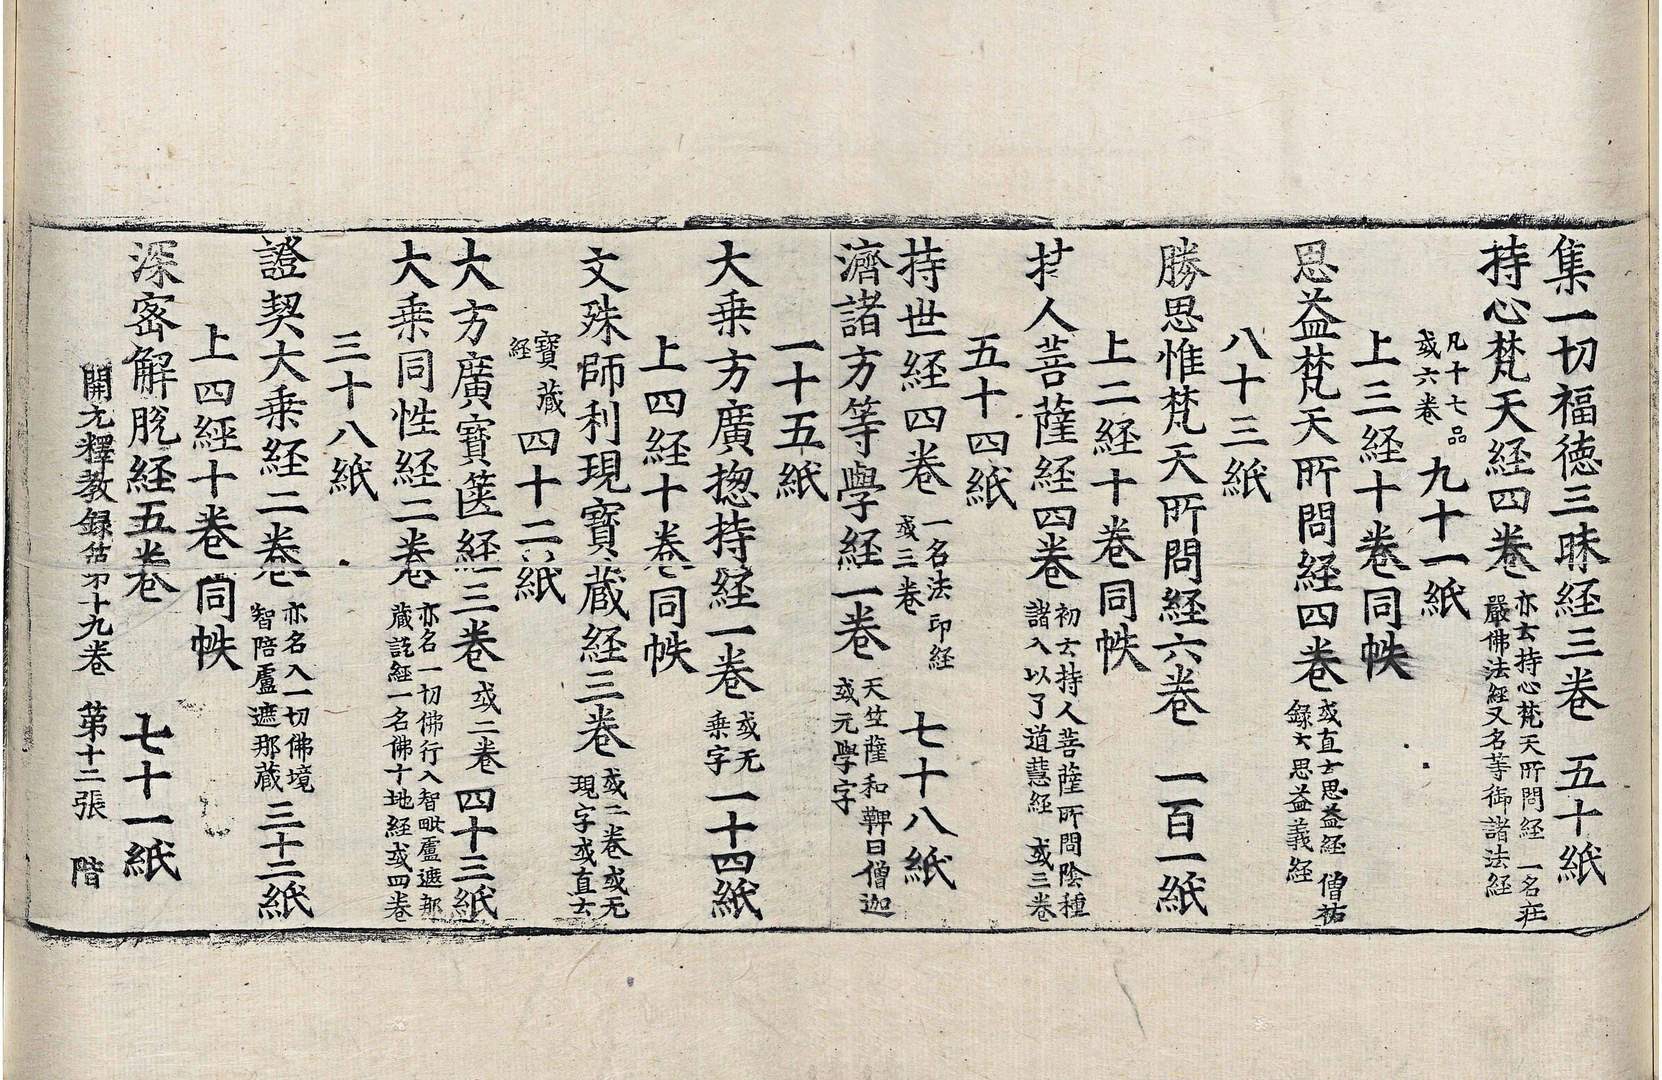 集一切福徳三昧経三卷 五十紙
持心梵天経四卷 亦云持心梵天所問経 一名莊嚴佛法経又名等御諸法経
凡十七品或六卷 九十一紙
上三経十卷同帙
思益梵天所問経四卷 或直云思益経 僧祐録云思益義経
八十三紙
勝思惟梵天所問経六卷 一百一紙
上二経十卷同帙
持人菩薩経四卷 初云持人菩薩所問陰種諸入以了道慧経 或三卷
五十四紙
持世経四卷 一名法印経或三卷 七十八紙
濟諸方等學経一卷 天竺薩和鞞曰僧迦或无學字
一十五紙
大乗方廣揔持経一卷 或无乗字 一十四紙
上四経十卷同帙
文殊師利現寳蔵経三卷 或二卷或无現字或直云
寳蔵経 四十二紙
大方廣寳篋経三卷 或二卷 四十三紙
大乗同性経二卷 亦名一切佛行入智毗盧遮那蔵説経一名佛十地経或四卷
三十八紙
證契大乗経二卷 亦名入一切佛境智陪盧遮那蔵 三十二紙
上四経十卷同帙
深密解脫経五卷 七十一紙
開元釋教録 第十九卷 第十二張 階